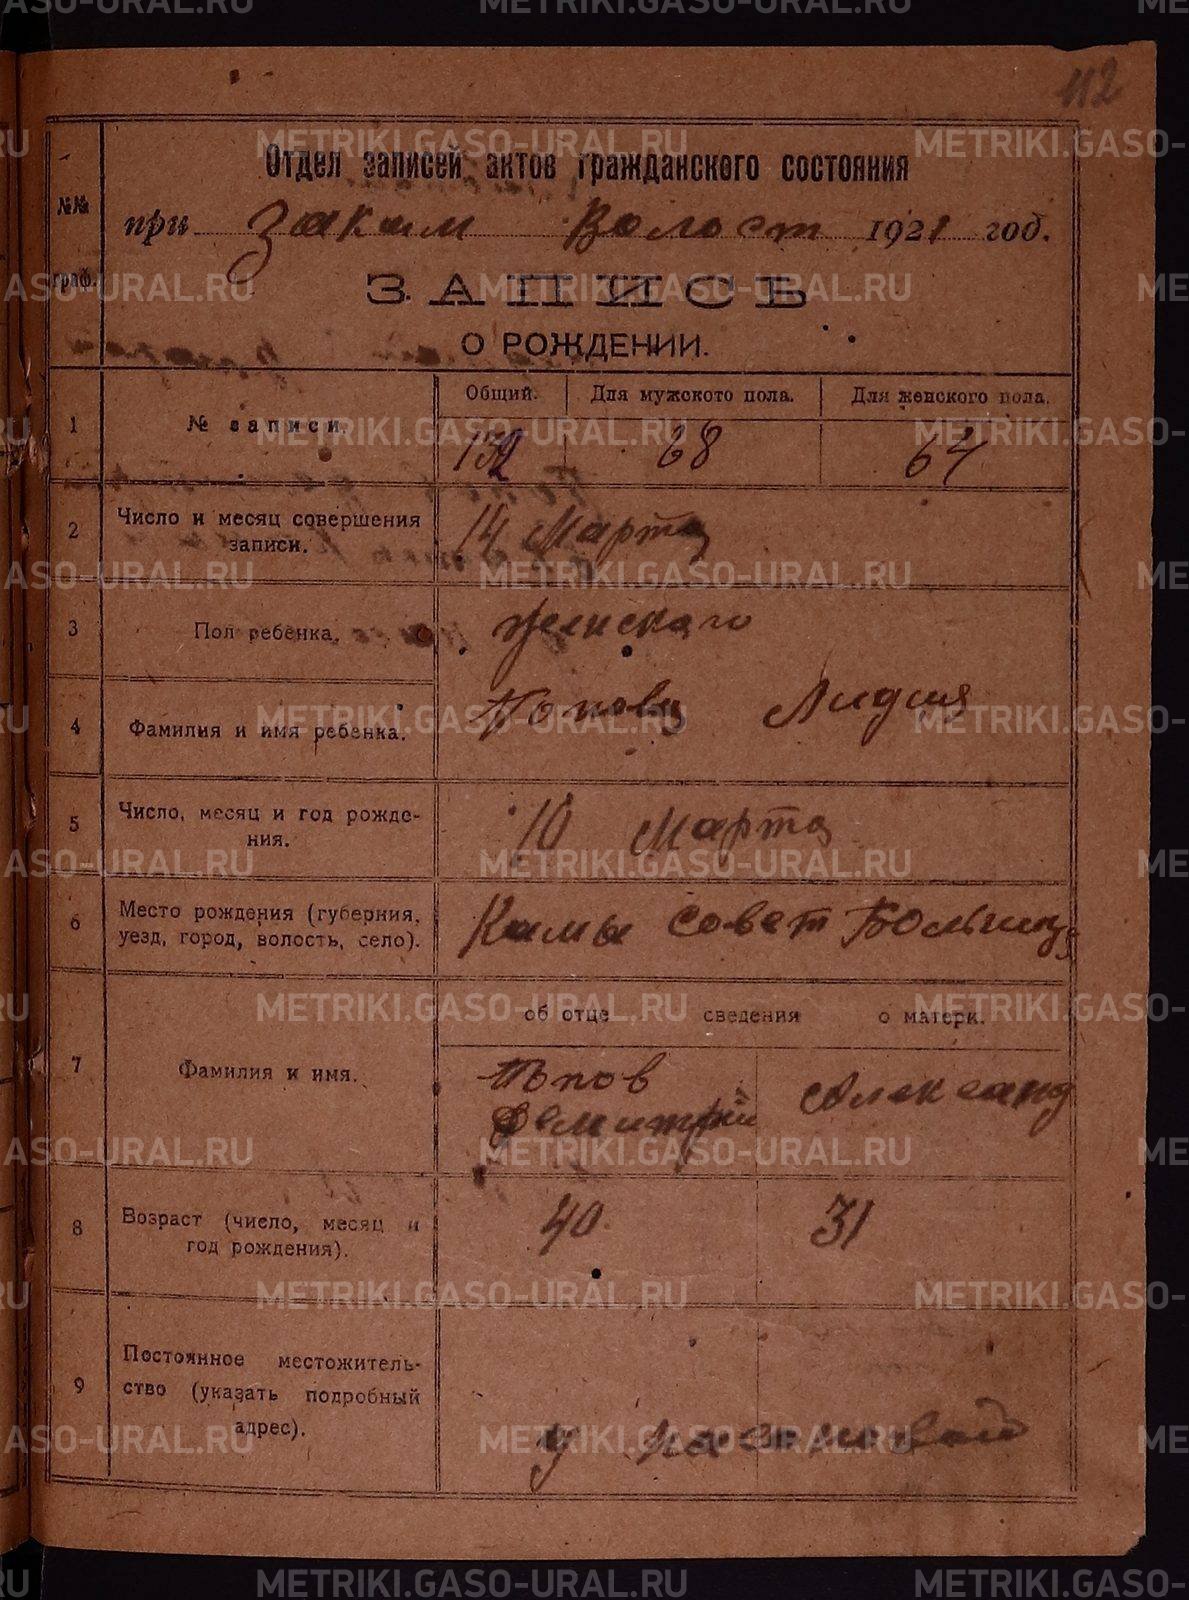 112
Отдел записей актов гражданского состояния
№№
граф.
при Закам Волост 1921 год.
ЗАПИСЬ
О РОЖДЕНИИ.
1 № записи. Общий. Для мужского пола. Для женского пола.
132 68 64
2 Число и месяц совершения
записи.
14 Марта
3 Пол ребенка. женскаго
4 Фамилия и имя ребенка. Попова Лидия
5 Число, месяц и год рожде-
ния.
10 Марта
6 Место рождения (губерния,
уезд, город, волость, село).
Камы совет Больниц
об отце сведения о матери.
7 Фамилия и имя.
Попов Александ
Демитрий
8 Возраст (число, месяц и
год рождения).
40 31
9 Постоянное местожитель-
ство (указать подробный
адрес).
METRIKI.GASO-URAL.RU